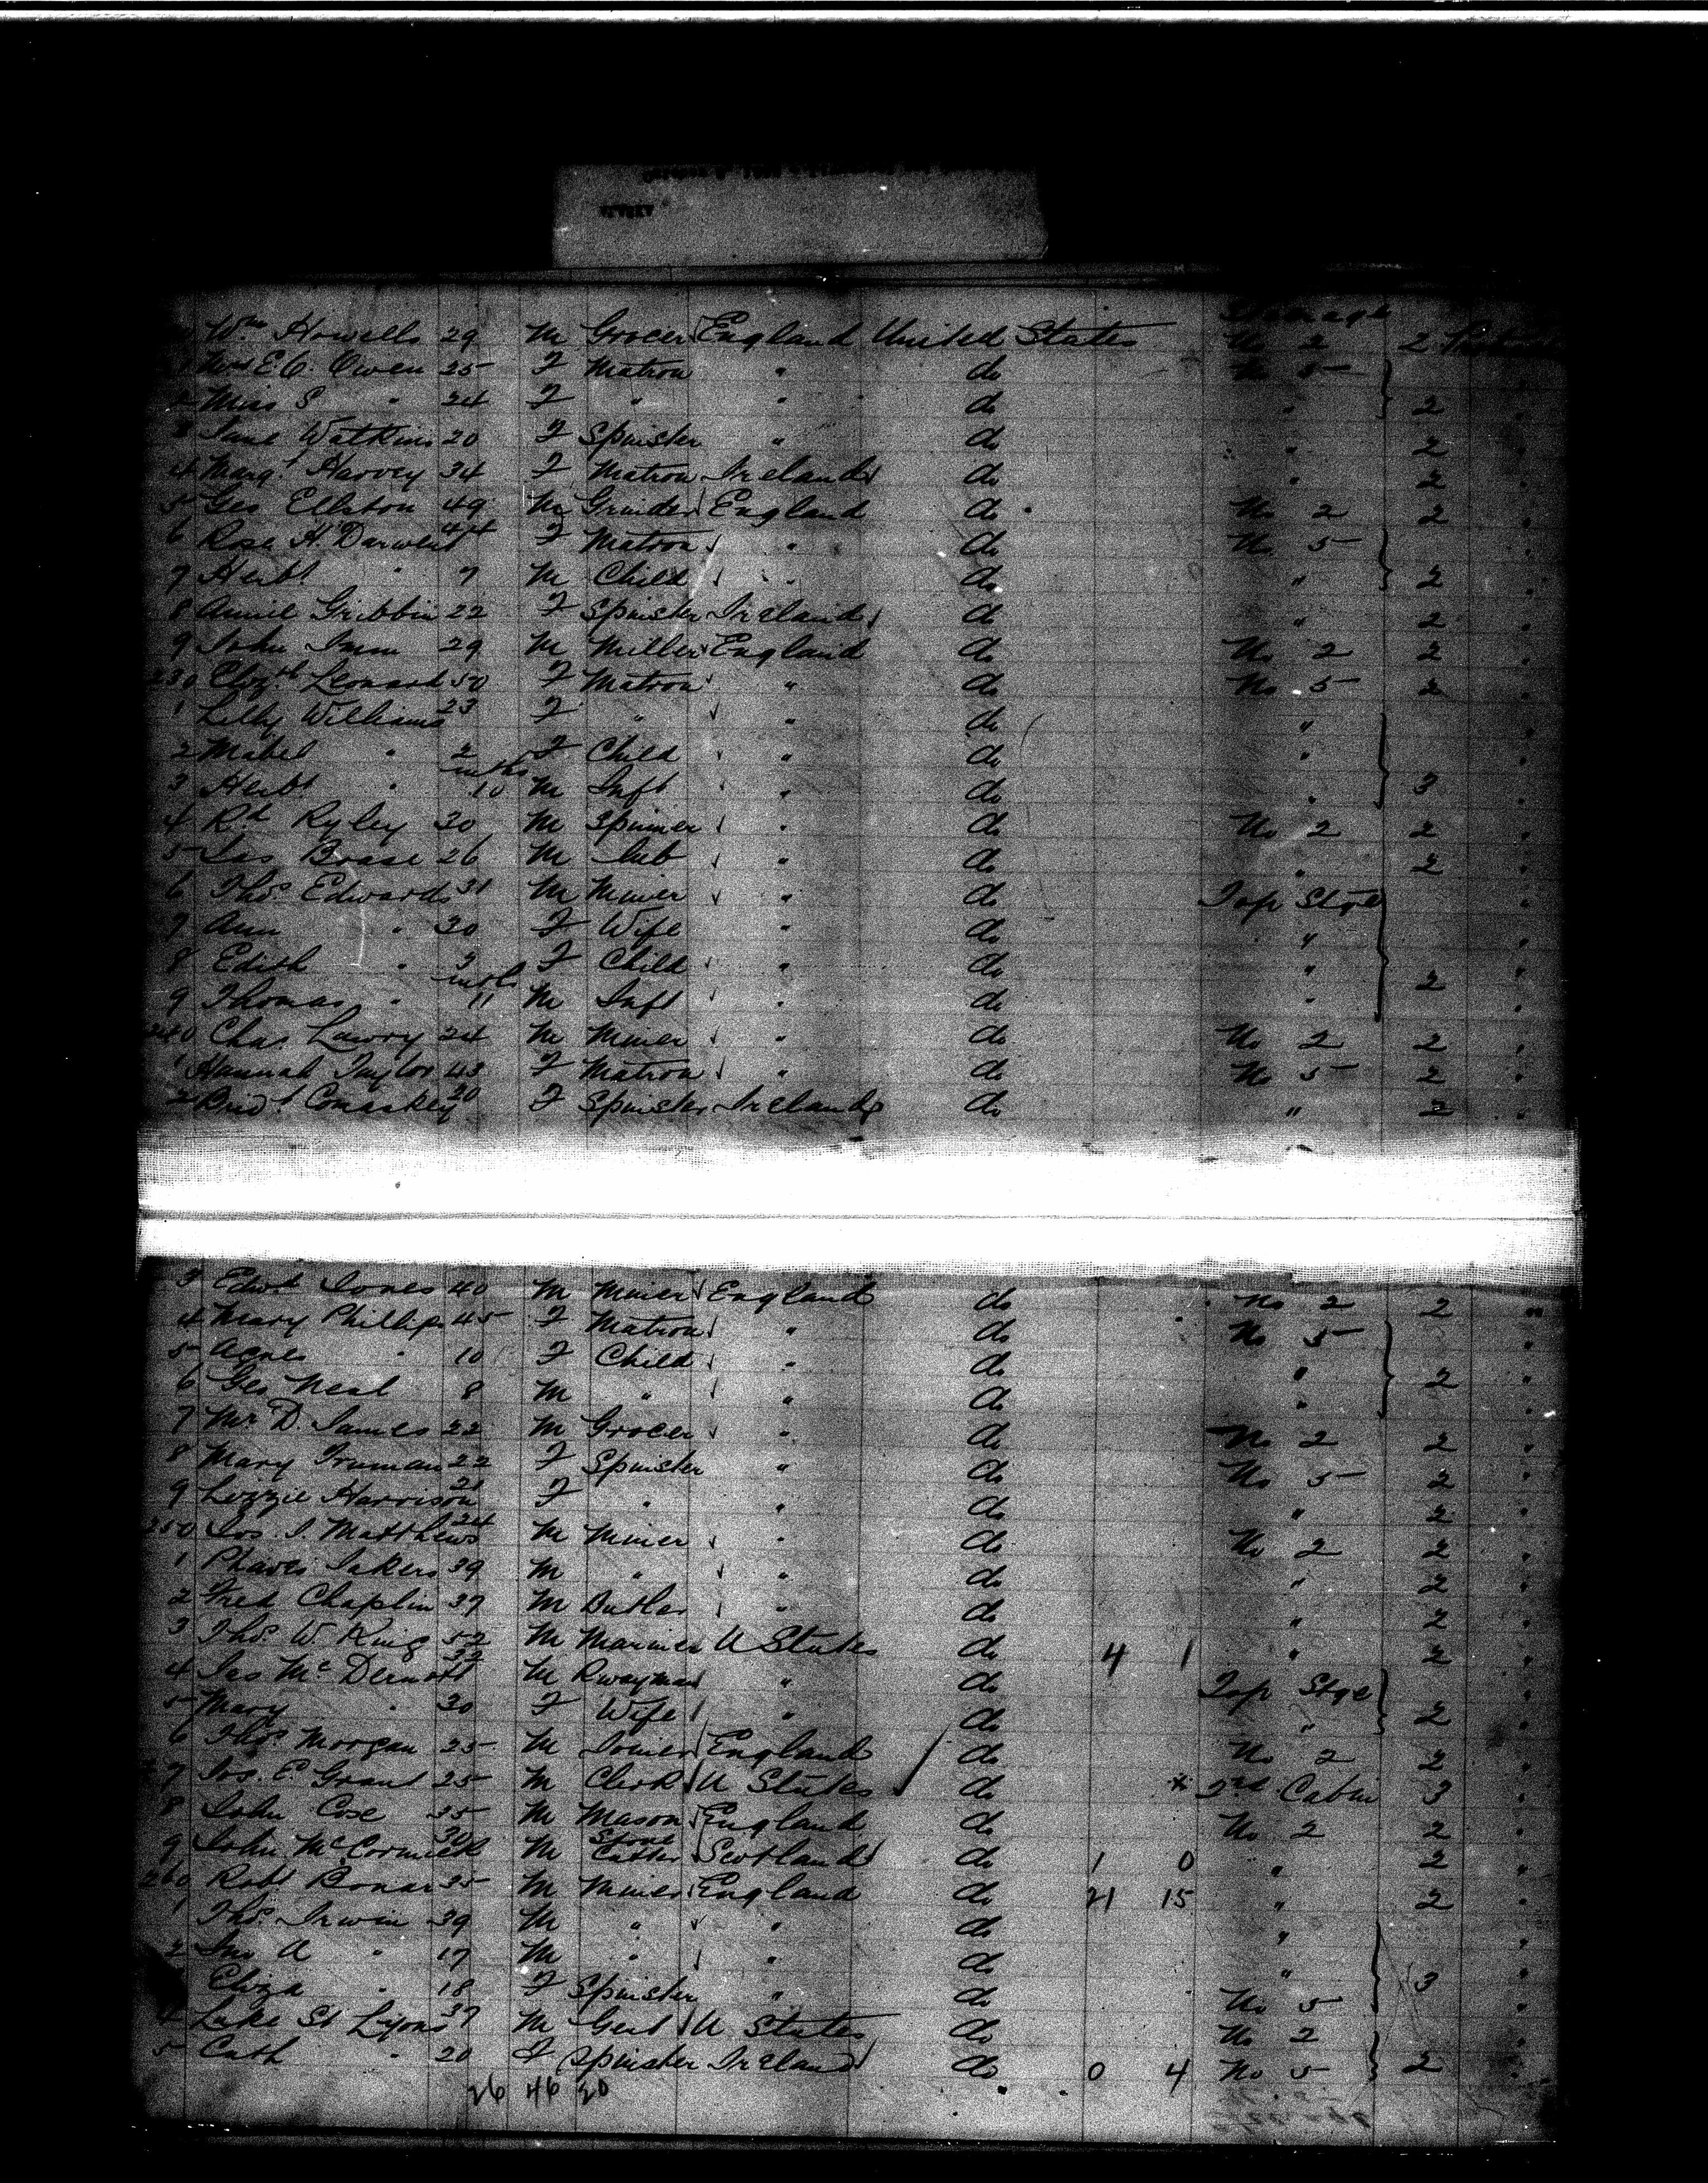 Wm Howells 29 M Grocer England United States No 2 2
Mrs E C. Owen 25 F Matron " do No 5
2 Miss S " 24 F " " do " 2
3 Jane Watkins 20 F Spinster " do " 2
4 Margt Harvey 34 F Matron Ireland do " 2
5 Geo Ellston 49 M Grinder England do No 2 2 "
6 Rose H. Darwent 44 F Matron " do No 5 "
7 Herbt " 7 M Child " do " 2 "
8 Annie Gribbin 22 F Spinster Ireland do " 2 "
9 John Imm 29 M Miller England do No 2 2 "
230 Elizth Leonard 50 F Matron " do No 5 2 "
1 Lilly Williams 23 F " " do " "
2 Mabel " 2 F Child " do " "
3 Herbt " mths 10 M Inft " do " 3 "
4 Rd Ryley 30 M Spinner " do No 2 2 "
5 Jas 26 M " do " 2 "
6 Thos Edwards 31 M Miner " do Top Stge "
7 Ann " 30 F Wife " do " "
8 Edith " F Child " do " 2 "
9 Thomas " mths 11 M Inft " do " "
240 Chas Lawry 24 M Miner " do No 2 2 "
1 Hannah Taylor 43 F Matron " do No 5 2 "
2 Bridt Comaskey 20 F Spinster Ireland do " 2 "
3 Edwd Jones 40 M Miner England do No 2 2 "
4 Mary Phillips 45 F Matron " do No 5 "
5 Agnes " 10 F Child " do " 2 "
6 Geo Neal 8 M " " do " "
7 Mr D. James 22 M Grocer " do No 2 2 "
8 Mary Truman 22 F Spinster " do No 5 2 "
9 Lizzie Harrison 21 F " " do " 2 "
250 Jos. J. Matthews 24 M Miner " do No 2 2 "
1 Jakers 39 M " " do " 2 "
2 Fred Chaplin 37 M Butler " do " 2 "
3 Thos W. King 52 M Mariner U States do 4 1 " 2 "
4 Jas McDermott 32 M Rwayman " do Top Stge "
5 Mary " 30 F Wife " do " 2 "
6 Thos Morgan 25 M Joiner England do No 2 2 "
7 Jos. E. Grant 25 M Clerk U States do 2nd Cabin 3 "
8 John Cose 35 M Mason England do No 2 2 "
9 John McCormick 30 M Stone Cutter Scotland do 1 0 " 2 "
260 Robt Bonar 35 M Miner England do 21 15 " 2 "
1 Thos Irwin 39 M " " do " "
2 Jno A " 17 M " " do " 3 "
Eliza " 18 F Spinster " do No 5 "
4 Luke St Lyons 37 M Gent U States do No 2 "
5 Cath " 20 F Spinster Ireland do 0 4 No 5 2 "
26 46 20